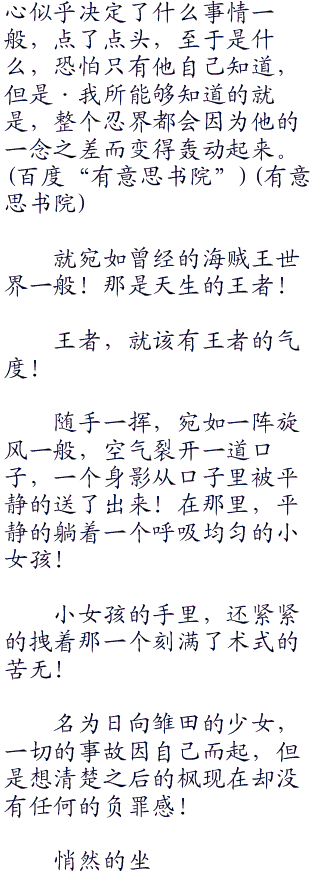 心似乎决定了什么事情一
般，点了点头，至于是什
么，恐怕只有他自己知道，
但是·我所能够知道的就
是，整个忍界都会因为他的
一念之差而变得轰动起来。
(百度“有意思书院”)(有意
思书院)
就宛如曾经的海贼王世
界一般！那是天生的王者！
王者，就该有王者的气
度！
随手一挥，宛如一阵旋
风一般，空气裂开一道口
子，一个身影从口子里被平
静的送了出来！在那里，平
静的躺着一个呼吸均匀的小
女孩！
小女孩的手里，还紧紧
的拽着那一个刻满了术式的
苦无！
名为日向雏田的少女，
一切的事故因自己而起，但
是想清楚之后的枫现在却没
有任何的负罪感！
悄然的坐